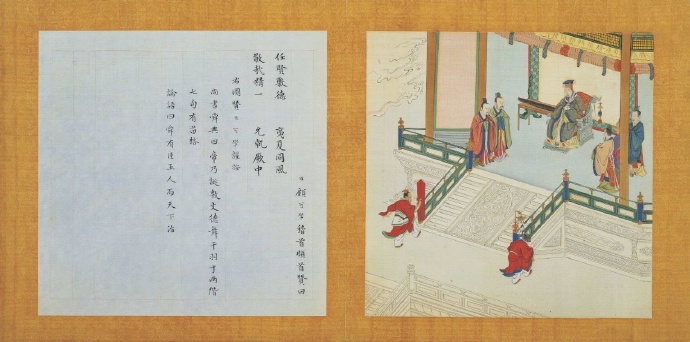 臣顧可學稽首頓首贊曰
任賢敷德 夏同風
敬哉精一 允執厥中
右圖贊臣可學謹
尚書舜典曰帝乃誕敷文德舞干羽于兩階
七旬有苗格
論語曰舜有臣五人而天下治